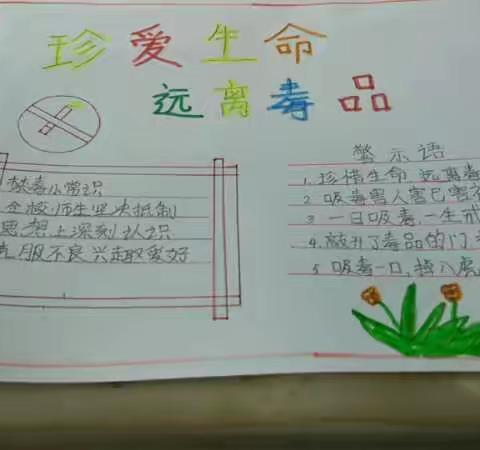 珍爱生命
远离毒品
禁毒小常识
全校师生坚决抵制
思想上深刻认识
克服不良兴趣爱好
警示语
1. 珍惜生命 远离毒
2. 吸毒害人害己害
3. 一日吸毒,一生戒
4. 敲开了毒品的门
5. 吸毒一口,掉入虎